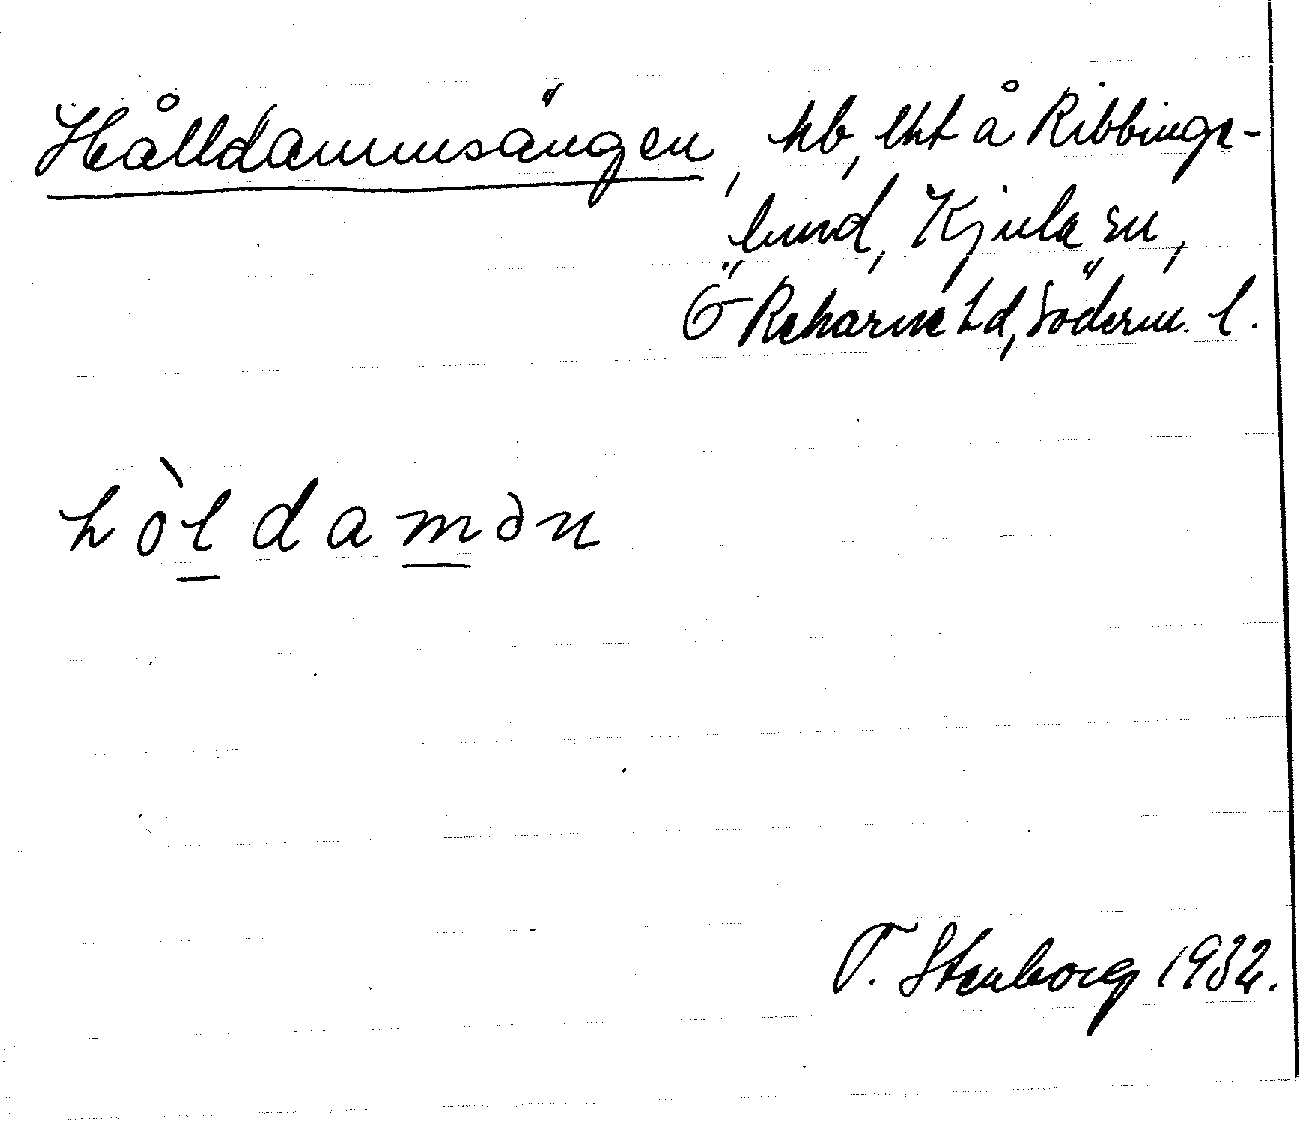 Hålldammsängen, hb, lht å Ribbings-
lund, Kjula sn,
Ö Rekarne hd, Söderm. l.
hòldamən
T. Stenborg 1932.